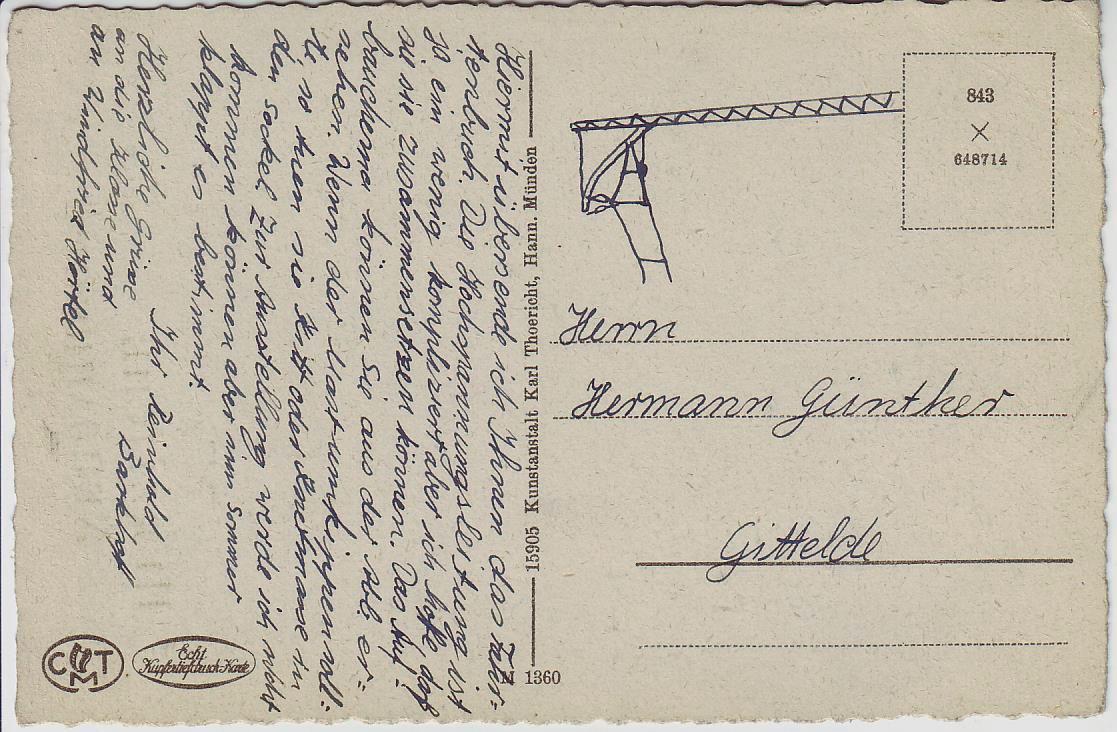 Hiermit übersende ich Ihnen das
tenbuch. Die Hochspannungsleitung ist
so ein wenig kompliziert aber ich hoffe daß
sie sie zusammensetzen können. Das Auf-
bauschema können Sie aus der Abb er-
sehen. Wenn der Mast umkippen woll-
te so tuen sie Kitt oder in
den Sockel Zur Ausstellung werde ich nicht
kommen können aber im Sommer
klappt es bestimmt.
Ihr Reinhold
Barkhoff
Herzliche Grüße
an die Klasse und
an Windfried Härtel
15905 Kunstanstalt Karl Thoericht, Hann. Münden
M 1360
843
×
648714
Herrn
Hermann Günther
Gittelde
CMT
Echt
Kupfertiefdruck-Karte